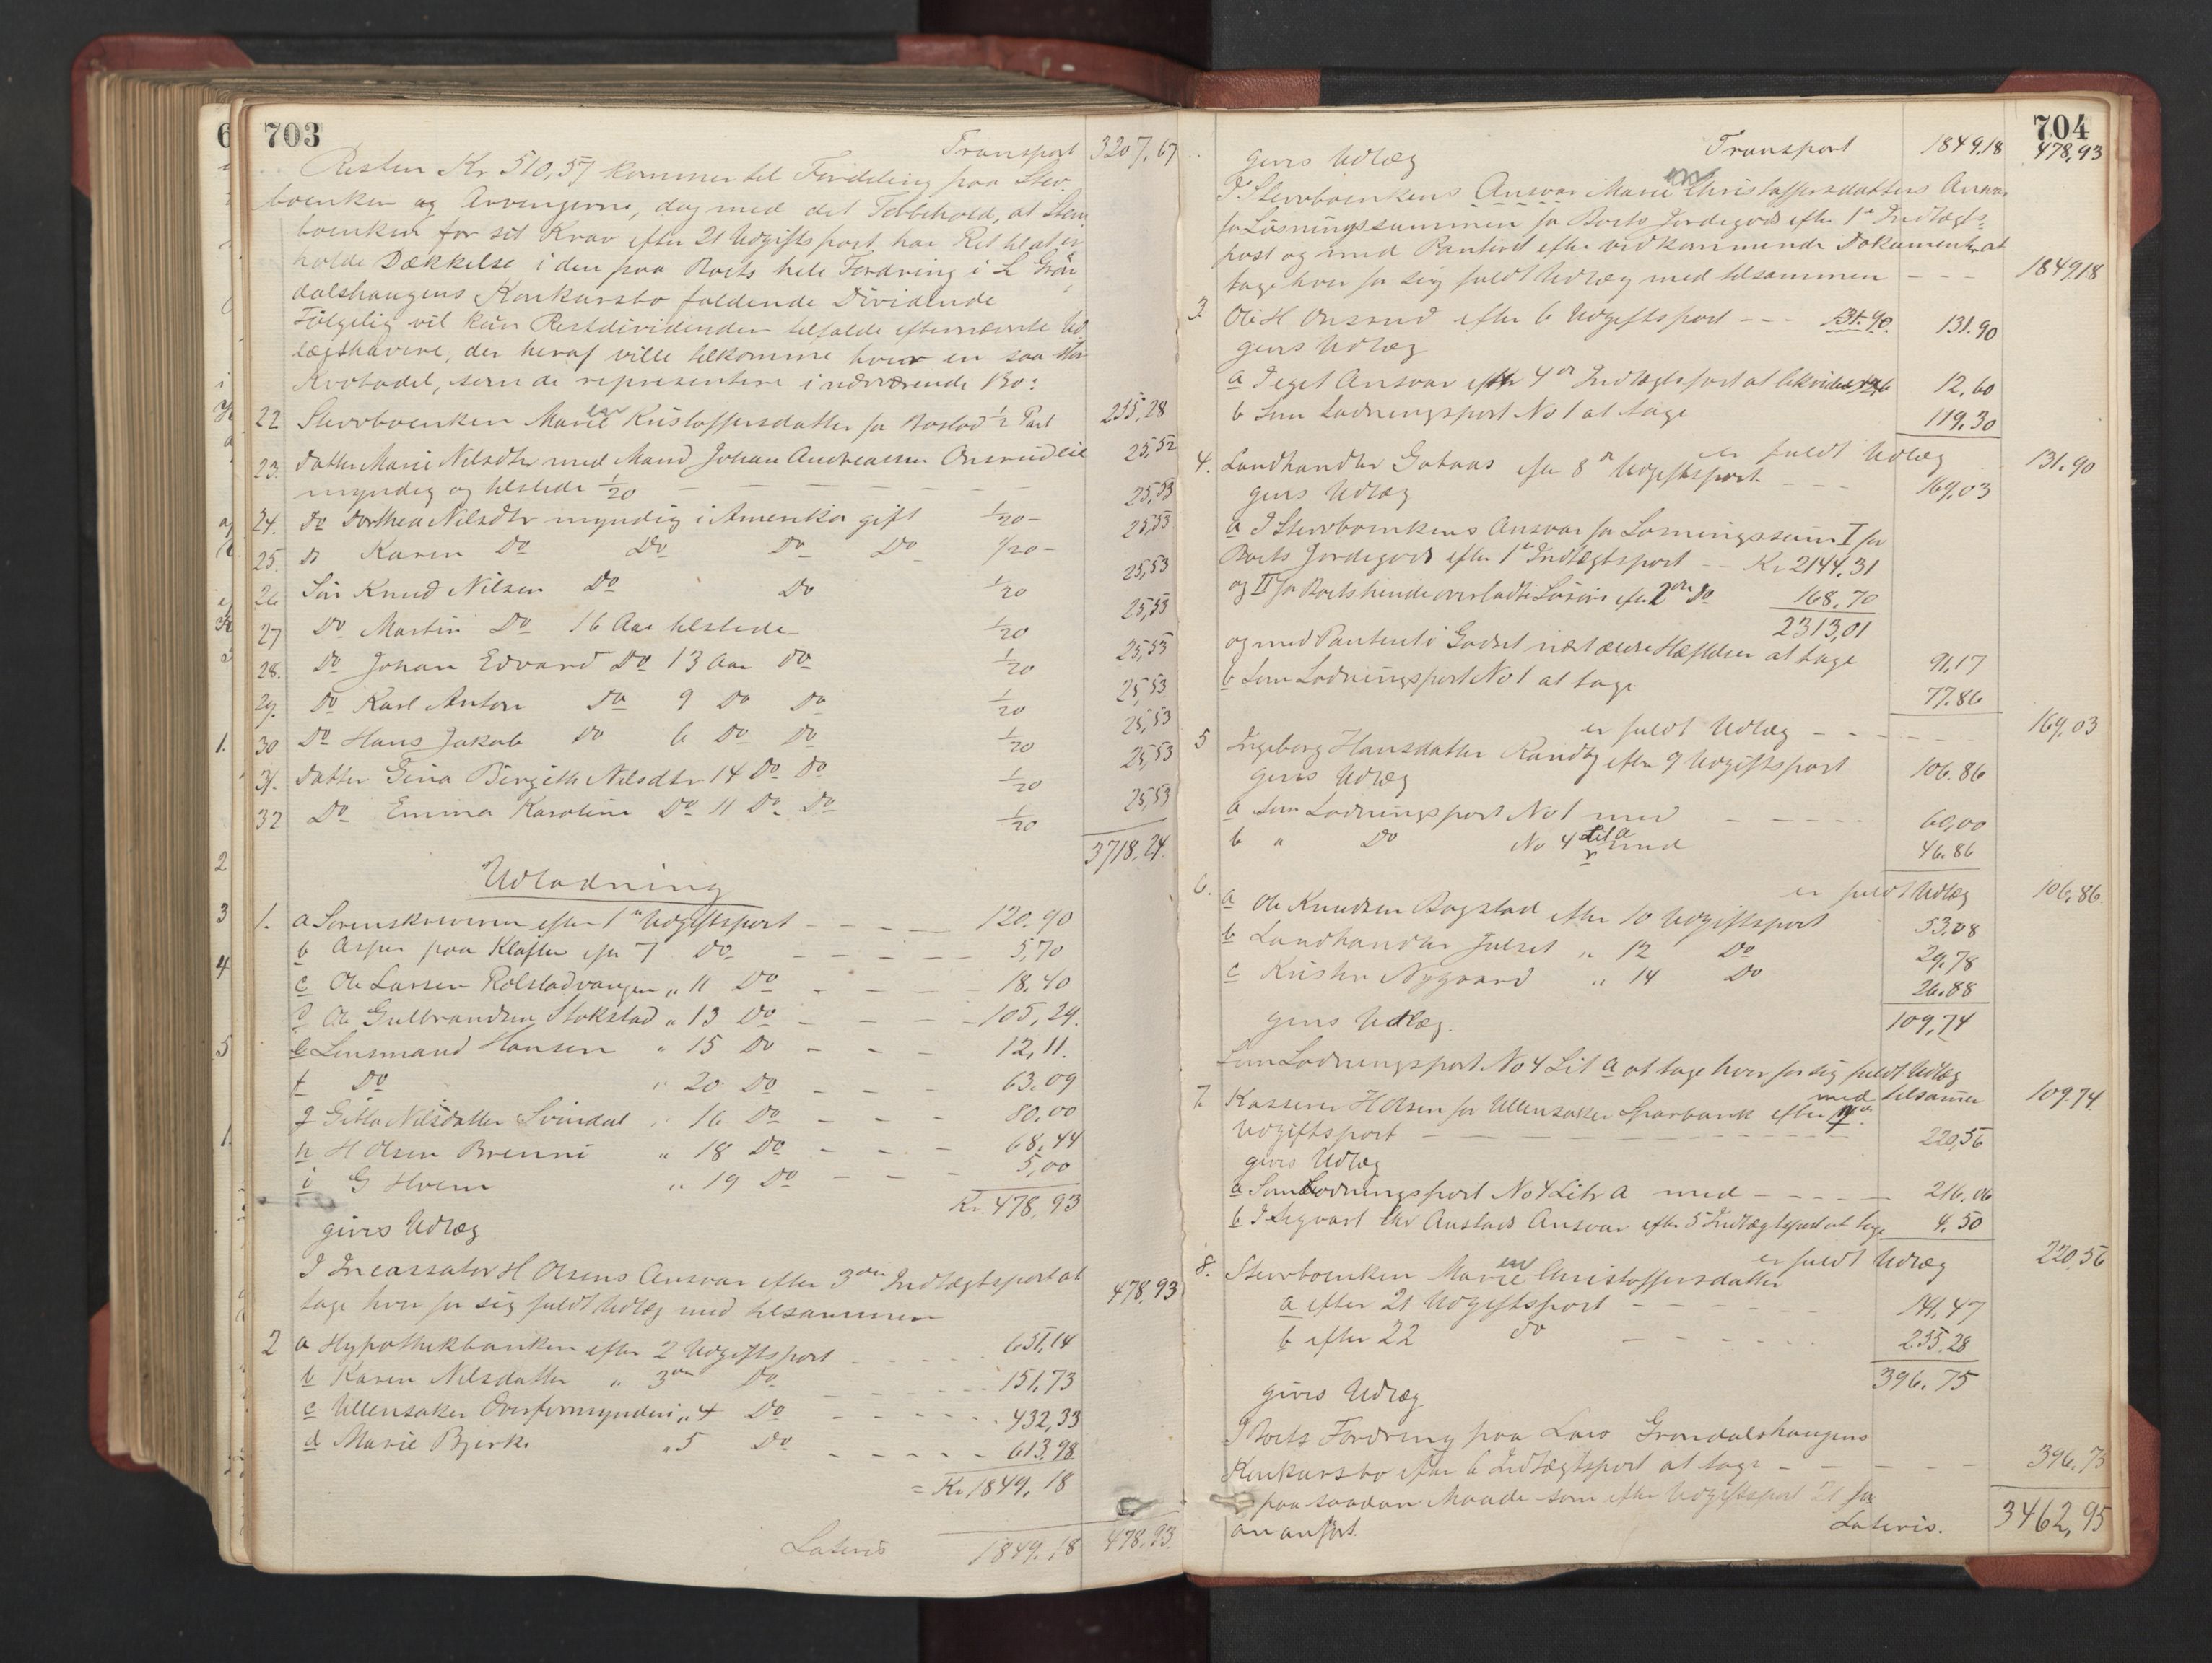 703
Transport 3207,67
Resten Kr 510,57 kommer til Fordeling paa Stervboenken og Arvingerne, dog med det Forbehold, at Sterv
boenken for sit Krav efter 21 Udgiftspost har Ret til at er
holde Dækkelse i den paa Boets hele Fordring i L Grøn
dalshaugens Konkursbo faldende Dividende
Følgelig vil kun Restdividenden tilfalde efternævnte Ud
lægshavere, der heraf ville tilkomme hver en saa stor
Kvotadel, som de representere i nærværende Bo:
22 Stervboenken Maren Kristoffersdatter for Boslod ½ Part 255,28
23. Datter Marie Nilsdtr med Mand Johan Andreassen Onsrudeie 25,52
myndig og tilstede 1/20 25,53
24. Do Dorthea Nilsdtr myndig i Amerika gift 1/20 - 25,53
25. Do Karen Do Do Do Do 1/20 -
26 Søn Knud Nilsen Do Do 1/20 25,53
27 Do Martin Do 16 Aar tilstede 1/20 25,53
28. Do Johan Edvard Do 13 Aar Do 1/20 25,53
29. Do Karl Anton Do 9 Do Do 1/20 25,53
30 Do Hans Jakob Do 6 Do Do 1/20 25,53
31. Datter Gina Birgitte Nilsdtr 14 Do Do 1/20 25,53
32 Do Emma Karoline Do 11 Do Do 1/20 25,53
3718,24.
Udlodning
1. a Sorenskriveren efter 1ste Udgiftspost 120.90
b Asper paa Kløften efter 7 Do 5,70
c Ole Larsen Rolstadvangen " 11 Do 18.40
d Ole Gulbrandsen Stokstad " 13 Do 105,29.
e Lensmand Hansen " 15 Do 12,11.
f Do " 20 Do 63.09
g Gitla Nilsdatter Svindal " 16 Do 80,00
h H Olsen Brenni " 18 Do 68,44
i G Hvem " 19 Do 5,00
Kr. 478,93
gives Udlæg
I Incassator H Olsens Ansvar efter 3die Indtægtspost at
tage hver for sig fuldt Udlæg med tilsammen 478,93
2 a Hypothekbanken efter 2 Udgiftspost 651,14
b Karen Nilsdatter " 3die Do 151,73
c Ullensaker Overformynderi " 4 Do 432,33
d Marie Bjerke " 5 Do 613,98
= Kr 1849,18
Lateris 1849.18 478,93.
704
Transport 1849,18 478,93
gives Udlæg
I Stervboenkens Ansvar Maren Christoffersdatters Ansvar
for Løsningssummen for Boets Jordegods efter 1ste Indtægts-
post og med Panteret efter vedkommende Dokumenter at
tage hver for sig fuldt Udlæg med tilsammen 1849,18
3. Ole H Onsrud efter 6 Udgiftspost 131.90. 131.90
gives Udlæg
a I eget Ansvar efter 4de Indtægtspost at likvidere 12,60
b Som Lodningspost No 1 at tage 119,30
er fuldt Udlæg 131.90
4. Landhandler Gotaas efter 8de Udgiftspost 169,03
gives Udlæg
a I Stervboenkens Ansvar for Løsningssum I for
Boets Jordegods efter 1ste Indtægtspost Kr 2144,31
og II for Boets hende overladte Løsøre efter 2den Do 168,70
2313,01
og med Panteret i Godset næst ældre Hæftelser at tage 91,17
b Som Lodningspost No 1 at tage 77.86
er fuldt Udlæg 169,03
5 Ingeborg Hansdatter Randby efter 9 Udgiftspost 106.86
gives Udlæg
a Som Lodningspost No 1 med 60,00
b " Do No 4 Lit a med 46.86
er fuldt Udlæg 106,86.
6. a Ole Knudsen Bogstad efter 10 Udgiftspost 53,08
b Landhandler Julset " 12 Do 29,78
c Kristen Nygaard " 14 Do 26.88
gives Udlæg. 109,74
Som Lodningspost No 4 Lit a at tage hver for sig fuldt Udlæg
med tilsammen 109.74
7. Kasserer H Olsen for Ullensaker Sparbank efter 17de
Udgiftspost 220,56
gives Udlæg
a Som Lodningspost No 4 Litr a med 216,06
b I Sigvart Chr Austads Ansvar efter 5 Indtægtspost at tage 4.50
er fuldt Udlæg 220,56
8. Stervboenken Maren Christoffersdatter
a efter 21 Udgiftspost 141,47
b efter 22 do 255.28
396.75
gives Udlæg
I Boets Fordring paa Lars Grøndalshaugens
Konkursbo efter 6 Indtægtspost at tage 396,75
paa saadan Maade som efter Udgiftspost 21 for
an anført. Lateris. 3462,95